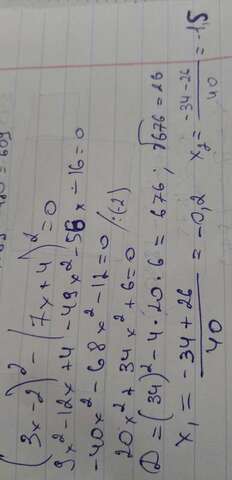 (3x-2)² - (7x+4)² = 0
9x²-12x+4-49x²-56x-16=0
-40x²-68x²-12=0 /:(-2)
20x²+34x²+6=0
D=(34)²-4·20·6=676; √676=26
x₁ = (-34+26)/40 = -0,2  x₂ = (-34-26)/40 = -1,5